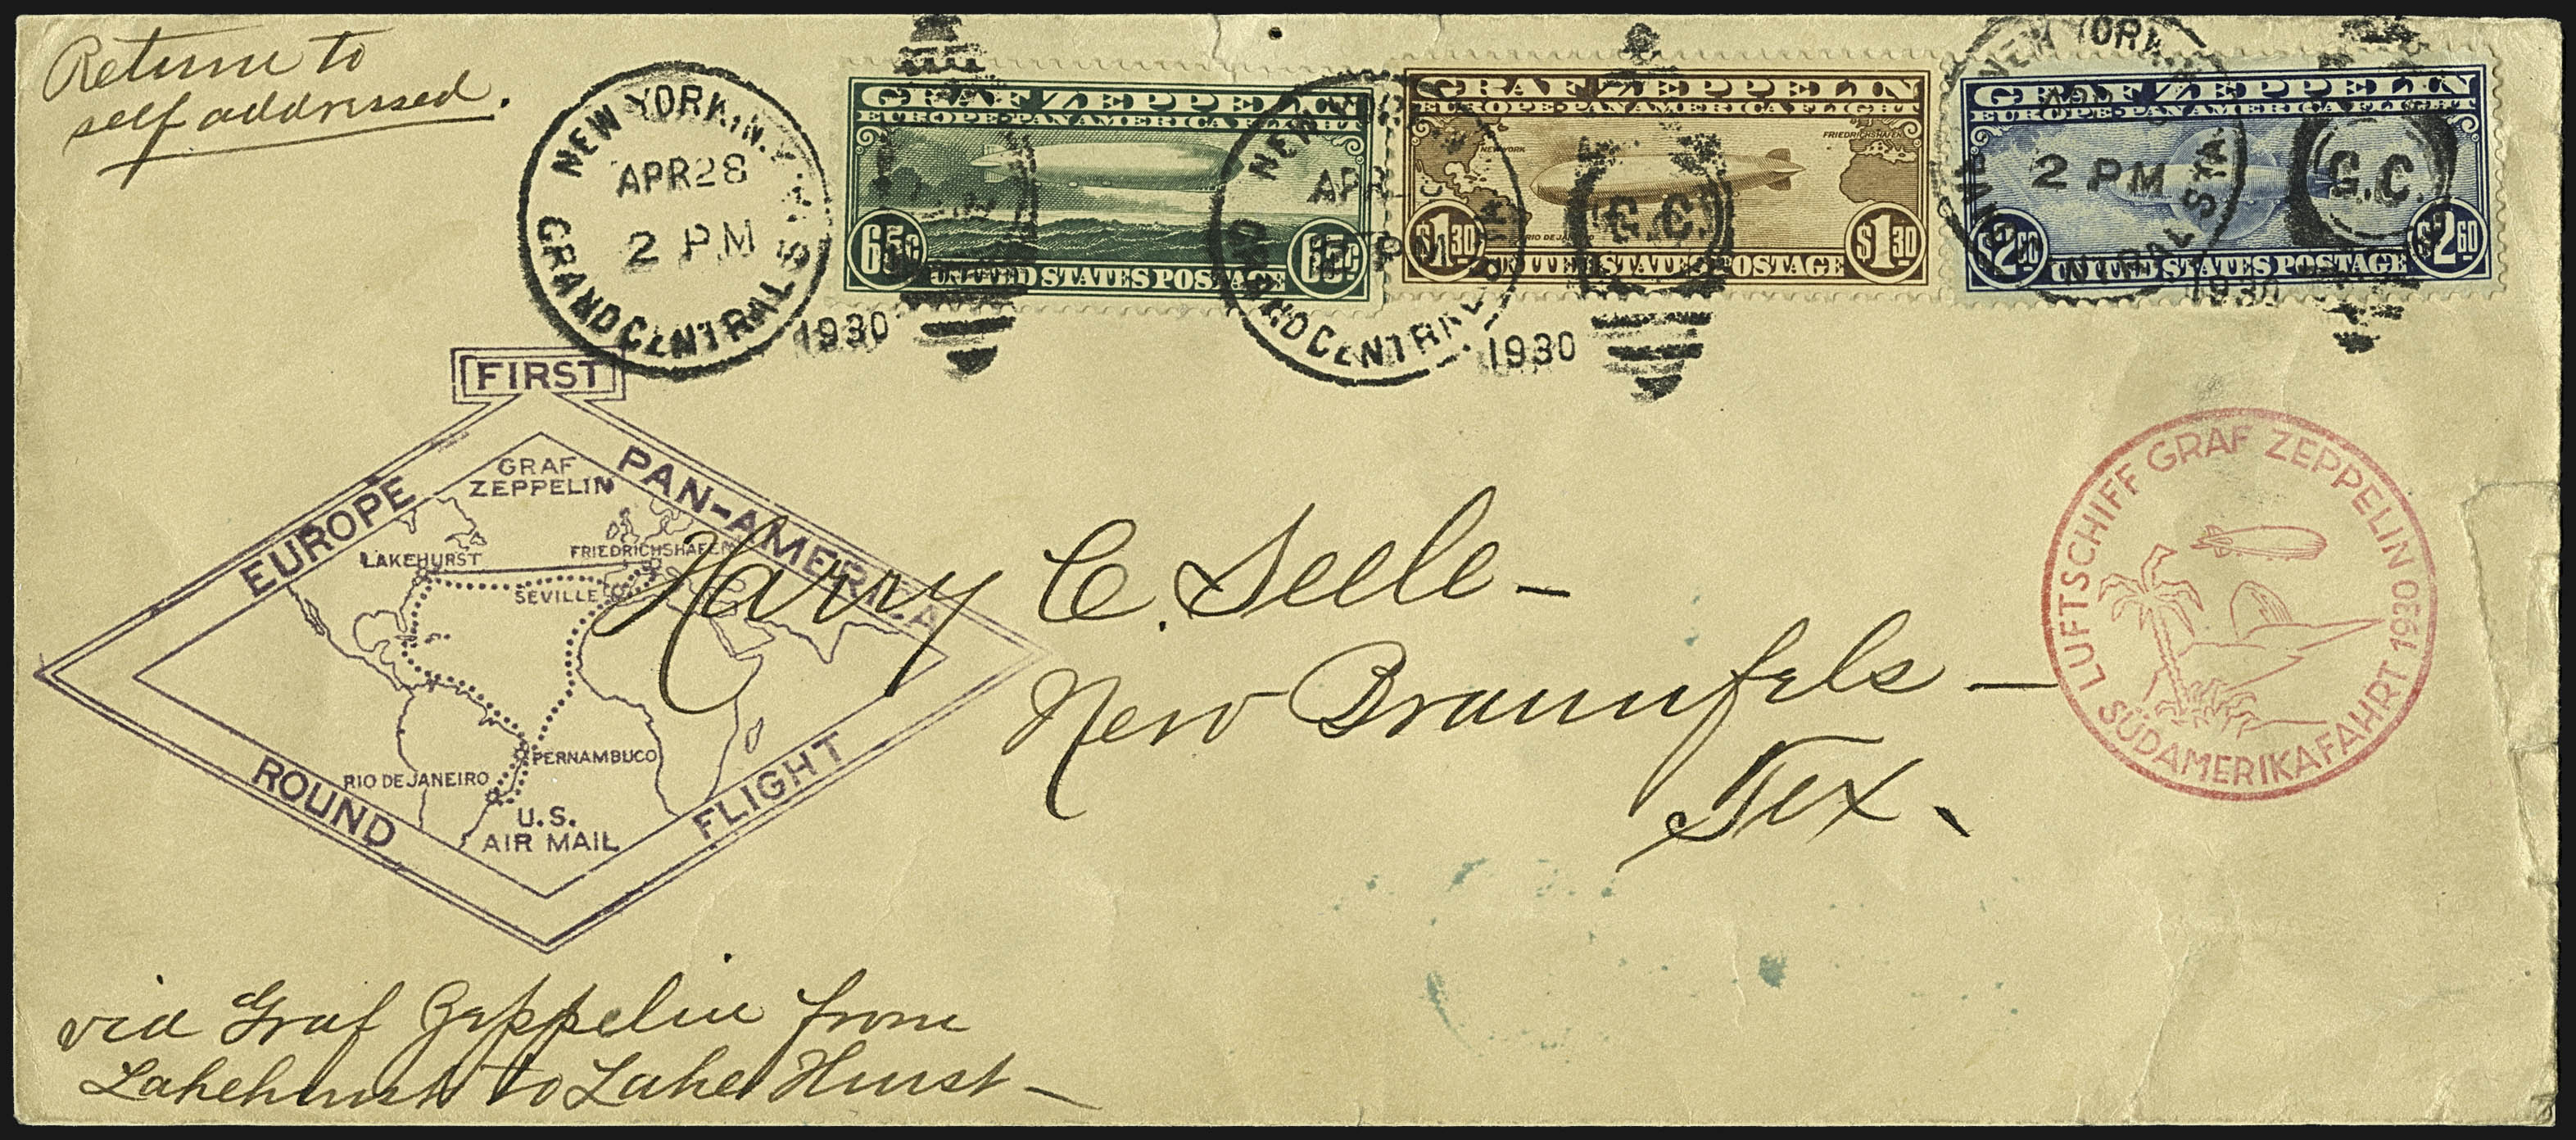 Return to
self addressed.
NEW YORK, N.Y.
APR 28
2 PM
1930
GRAND CENTRAL STA.
GRAF ZEPPELIN
EUROPE-PAN AMERICA FLIGHT
65c 65c
UNITED STATES POSTAGE
NEW YORK
APR
PM
1930
GRAND CENTRAL STA
GRAF ZEPPELIN
EUROPE-PAN AMERICA FLIGHT
NEW YORK
FRIEDRICHSHAFEN
RIO DE JANEIRO
$1.30 $1.30
UNITED STATES POSTAGE
G.C.
NEW YORK
APR
2 PM
1930
GRAND CENTRAL STA
GRAF ZEPPELIN
EUROPE-PAN AMERICA FLIGHT
$2.60 $2.60
UNITED STATES POSTAGE
G.C.
FIRST
EUROPE
PAN-AMERICA
GRAF
ZEPPELIN
LAKEHURST
FRIEDRICHSHAFEN
SEVILLE
PERNAMBUCO
RIO DE JANEIRO
U.S.
AIR MAIL
ROUND
FLIGHT
Harry C. Seele -
New Braunfels -
Tex.
LUFTSCHIFF GRAF ZEPPELIN 1930
SÜDAMERIKAFAHRT
via Graf Zeppelin from
Lakehurst to Lake Hurst -